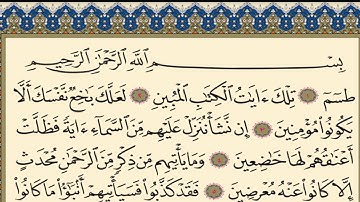 بِسْمِ اللَّهِ الرَّحْمَٰنِ الرَّحِيمِ
طسٓمٓ ۝ تِلْكَ ءَايَٰتُ ٱلْكِتَٰبِ ٱلْمُبِينِ ۝ لَعَلَّكَ بَٰخِعٌ نَّفْسَكَ أَلَّا
يَكُونُوا۟ مُؤْمِنِينَ ۝ إِن نَّشَأْ نُنَزِّلْ عَلَيْهِم مِّنَ ٱلسَّمَآءِ ءَايَةً فَظَلَّتْ
أَعْنَٰقُهُمْ لَهَا خَٰضِعِينَ ۝ وَمَا يَأْتِيهِم مِّن ذِكْرٍ مِّنَ ٱلرَّحْمَٰنِ مُحْدَثٍ
إِلَّا كَانُوا۟ عَنْهُ مُعْرِضِينَ ۝ فَقَدْ كَذَّبُوا۟ فَسَيَأْتِيهِمْ أَنۢبَٰٓؤُا۟ مَا كَانُوا۟